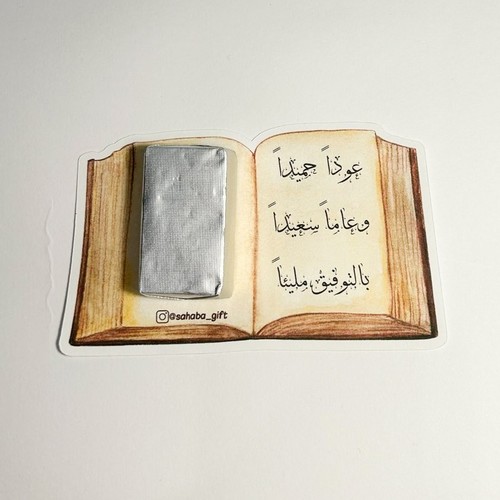 عوداً حميداً
وعاماً سعيداً
بالتوفيق مليئاً
@sahaba_gift